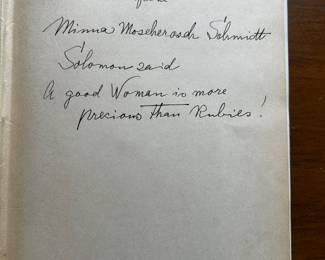 Minna Moscherosch Schmidt
Solomon said
A good Woman is more
precious than Rubies!